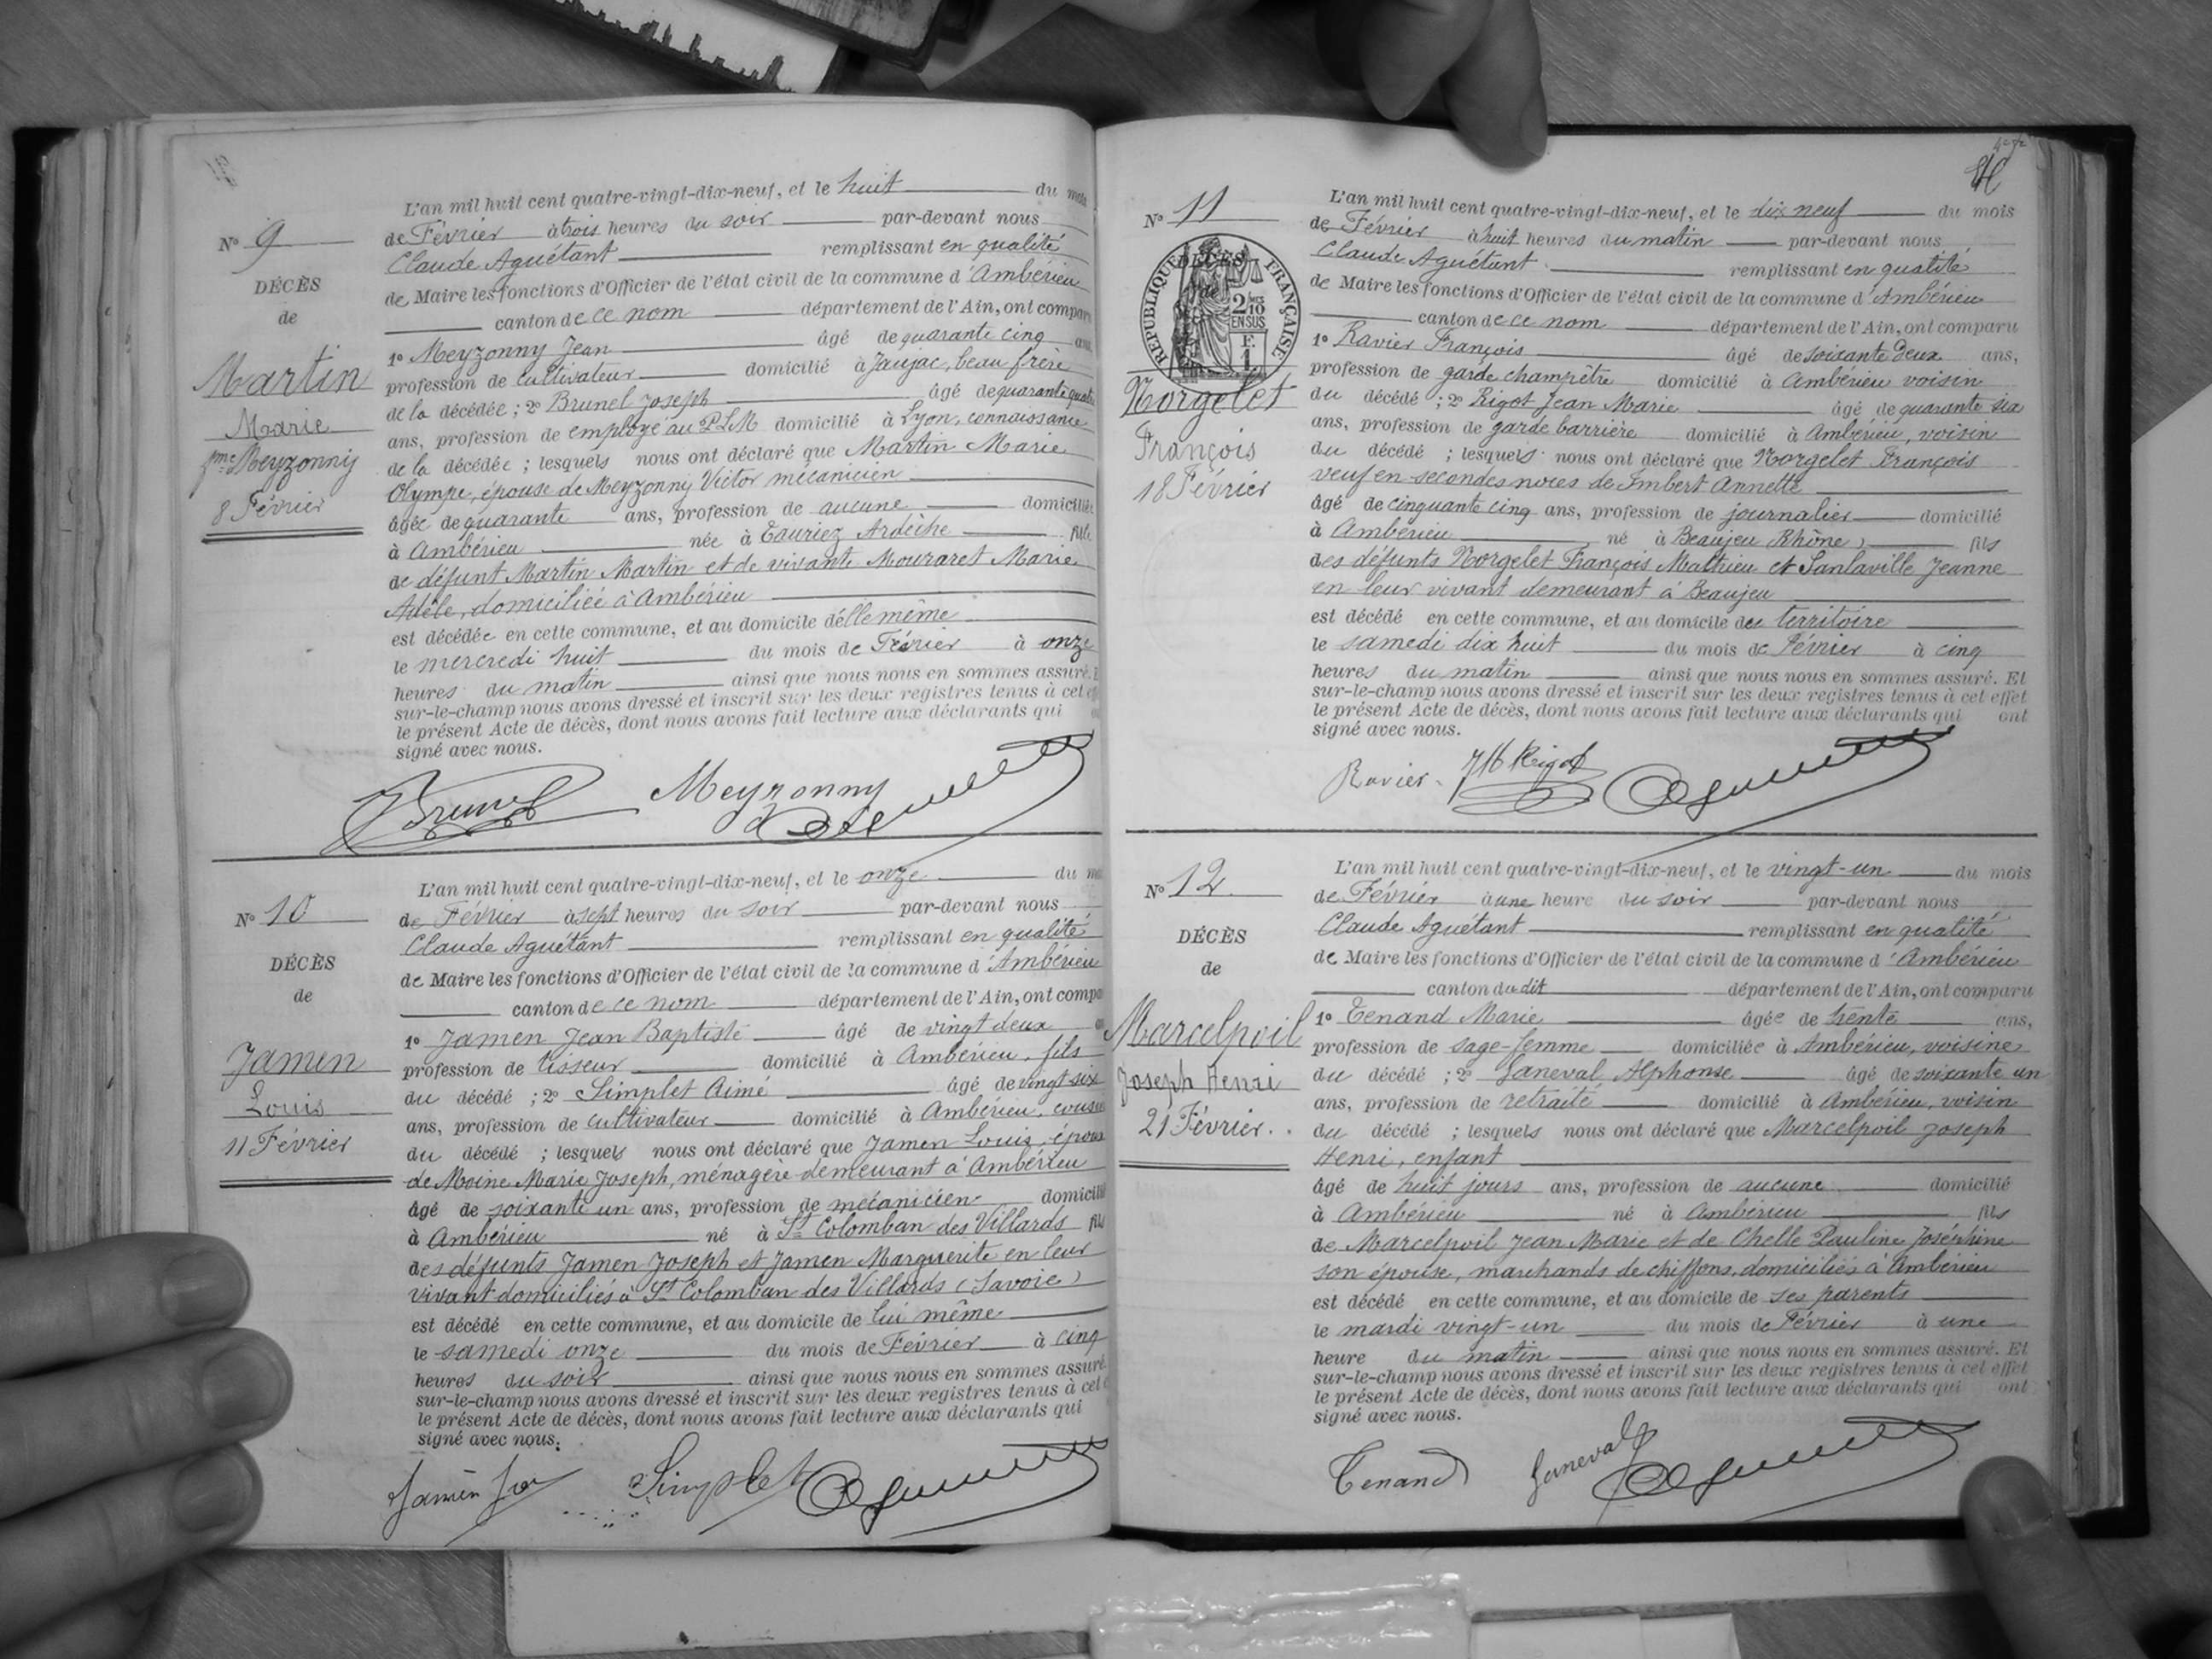 L'an mil huit cent quatre-vingt-dix-neuf, et le huit du mois
N° 9
de Février à trois heures du soir par-devant nous
Claude Aguétant remplissant en qualité
DÉCÈS
de Maire les fonctions d'Officier de l'état civil de la commune d'Ambérieu
de
canton de ce nom département de l'Ain, ont comparu
1° Meyzonny Jean âgé de quarante cinq ans
Martin
profession de cultivateur domicilié à Jaujac, beau frère
de la décédée ; 2° Brunel Joseph âgé de quarante quatre
Marie
ans, profession de employé au PLM domicilié à Lyon, connaissance
fme Meyzonny
de la décédée ; lesquels nous ont déclaré que Martin Marie
Olympe, épouse de Meyzonny Victor mécanicien
8 Février
âgée de quarante ans, profession de aucune domiciliée
à Ambérieu née à Tauriez Ardèche fille
de défunt Martin Martin et de vivante Mouraret Marie
Adèle, domiciliée à Ambérieu
est décédée en cette commune, et au domicile d'elle même
le mercredi huit du mois de Février à onze
heures du matin ainsi que nous nous en sommes assuré. E
sur-le-champ nous avons dressé et inscrit sur les deux registres tenus à cet ef
le présent Acte de décès, dont nous avons fait lecture aux déclarants qui
signé avec nous.
JBrunel Meyzonny
L'an mil huit cent quatre-vingt-dix-neuf, et le onze du m
N° 10
de Février à sept heures du soir par-devant nous
Claude Aguétant remplissant en qualité
DÉCÈS
de Maire les fonctions d'Officier de l'état civil de la commune d'Ambérieu
de
canton de ce nom département de l'Ain, ont compa
1° Jamen Jean Baptiste âgé de vingt deux
Jamen
profession de tisseur domicilié à Ambérieu, fils
du décédé ; 2° Simplet Aimé âgé de vingt six
Louis
ans, profession de cultivateur domicilié à Ambérieu, cousin
11 Février
du décédé ; lesquels nous ont déclaré que Jamen Louis, époux
de Moine Marie Joseph, ménagère demeurant à Ambérieu
âgé de soixante un ans, profession de mécanicien domicilié
à Ambérieu né à St Colomban des Villards fils
des défunts Jamen Joseph et Jamen Marguerite en leur
vivant domiciliés à St Colomban des Villards (Savoie)
est décédé en cette commune, et au domicile de lui même
le samedi onze du mois de Février à cinq
heures du soir ainsi que nous nous en sommes assuré.
sur-le-champ nous avons dressé et inscrit sur les deux registres tenus à cet
le présent Acte de décès, dont nous avons fait lecture aux déclarants qui
signé avec nous.
Simplet
L'an mil huit cent quatre-vingt-dix-neuf, et le dix neuf du mois
N° 11
de Février à huit heures du matin par-devant nous
Claude Aguétant remplissant en qualité
RÉPUBLIQUE FRANÇAISE
DÉCÈS
de
2/10 EN SUS
F. 1.
de Maire les fonctions d'Officier de l'état civil de la commune d'Ambérieu
canton de ce nom département de l'Ain, ont comparu
1° Ravier François âgé de soixante deux ans,
profession de garde champêtre domicilié à Ambérieu voisin
Norgelet
du décédé ; 2° Rigot Jean Marie âgé de quarante six
ans, profession de garde barrière domicilié à Ambérieu, voisin
François
du décédé ; lesquels nous ont déclaré que Norgelet François
18 Février
veuf en secondes noces de Imbert Annette
âgé de cinquante cinq ans, profession de journalier domicilié
à Ambérieu né à Beaujeu (Rhône) fils
des défunts Norgelet François Mathieu et Sanlaville Jeanne
en leur vivant demeurant à Beaujeu
est décédé en cette commune, et au domicile du territoire
le samedi dix huit du mois de Février à cinq
heures du matin ainsi que nous nous en sommes assuré. Et
sur-le-champ nous avons dressé et inscrit sur les deux registres tenus à cet effet
le présent Acte de décès, dont nous avons fait lecture aux déclarants qui ont
signé avec nous.
Ravier JM Rigot
L'an mil huit cent quatre-vingt-dix-neuf, et le vingt-un du mois
N° 12
de Février à une heure du soir par-devant nous
Claude Aguétant remplissant en qualité
DÉCÈS
de Maire les fonctions d'Officier de l'état civil de la commune d'Ambérieu
de
canton du dit département de l'Ain, ont comparu
Marcelpoil
1° Tenand Marie âgée de trente ans,
profession de sage-femme domiciliée à Ambérieu, voisine
Joseph Henri
du décédé ; 2° Janeval Alphonse âgé de soixante un
ans, profession de retraité domicilié à Ambérieu, voisin
21 Février
du décédé ; lesquels nous ont déclaré que Marcelpoil Joseph
Henri, enfant
âgé de huit jours ans, profession de aucune domicilié
à Ambérieu né à Ambérieu fils
de Marcelpoil Jean Marie et de Chelle Pauline Joséphine
son épouse, marchands de chiffons, domiciliés à Ambérieu
est décédé en cette commune, et au domicile de ses parents
le mardi vingt-un du mois de Février à une
heure du matin ainsi que nous nous en sommes assuré. Et
sur-le-champ nous avons dressé et inscrit sur les deux registres tenus à cet effet
le présent Acte de décès, dont nous avons fait lecture aux déclarants qui ont
signé avec nous.
Tenand Janeval